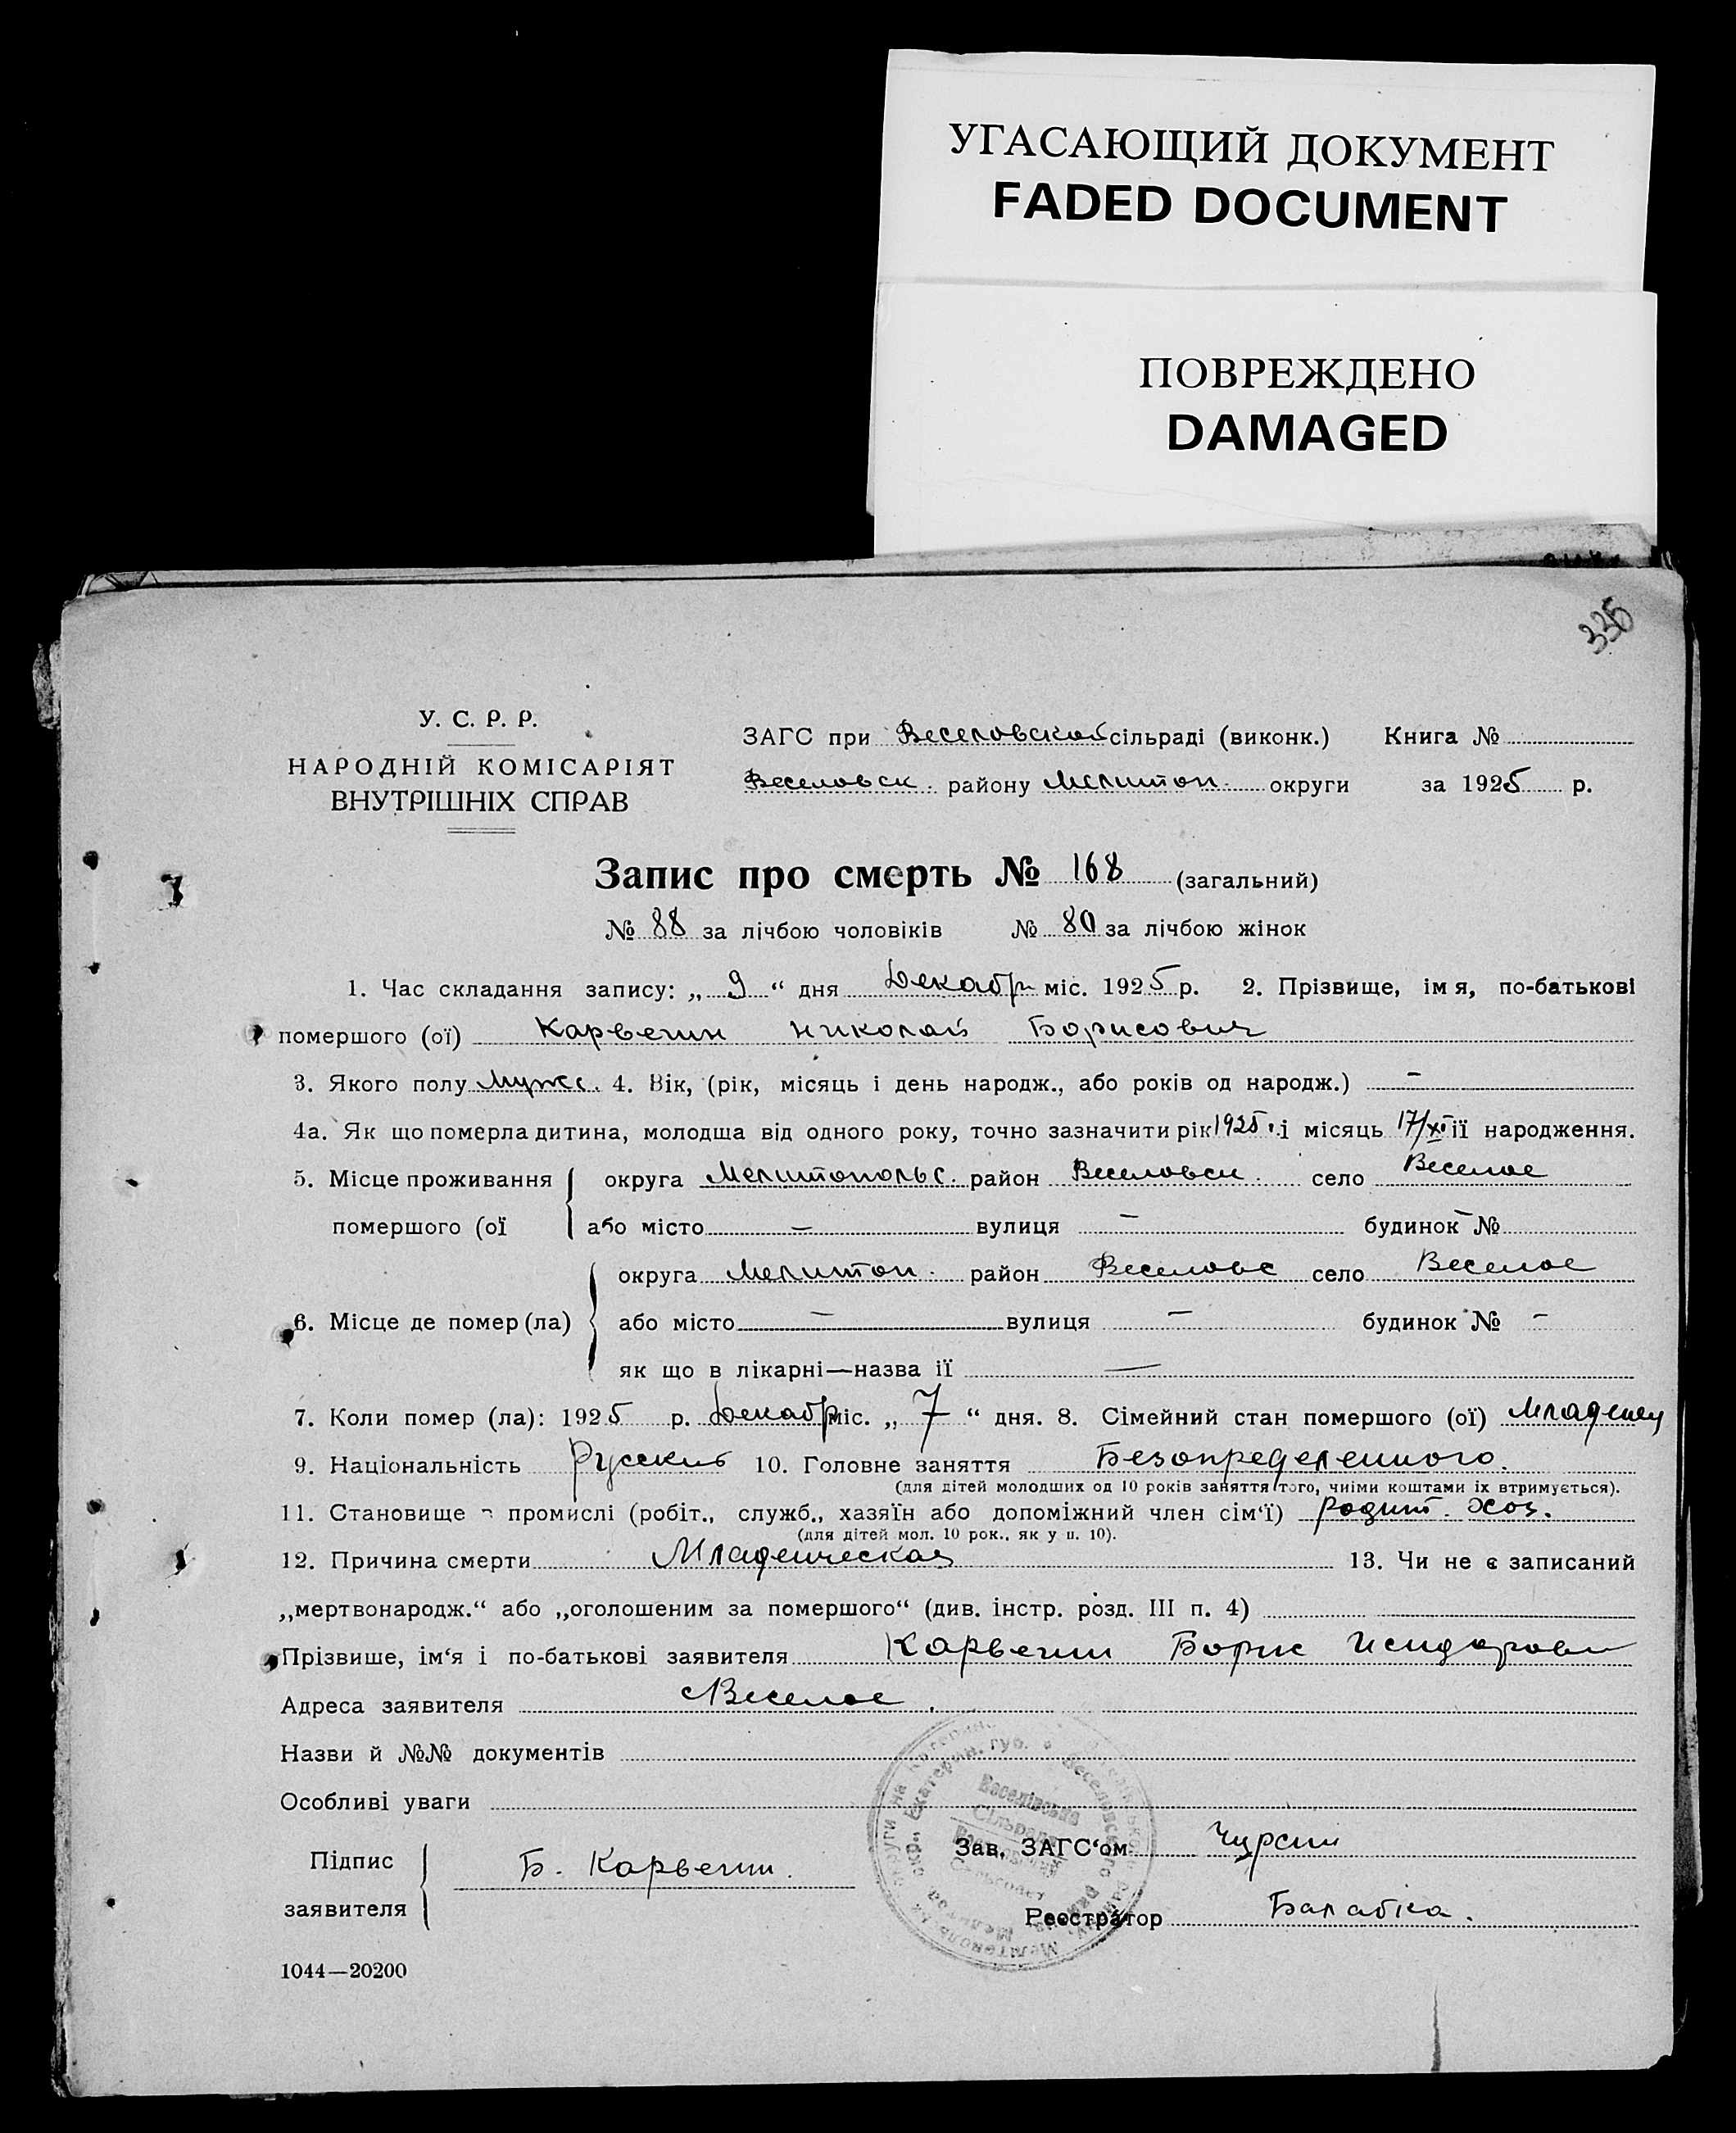 УГАСАЮЩИЙ ДОКУМЕНТ
FADED DOCUMENT
ПОВРЕЖДЕНО
DAMAGED
336
У. С. Р. Р.
НАРОДНІЙ КОМІСАРІЯТ
ВНУТРІШНІХ СПРАВ
ЗАГС при Веселовской сільраді (виконк.) Книга №
Веселовск. району Мелитоп. округи за 1925 р.
Запис про смерть № 168 (загальний)
№ 88 за лічбою чоловіків № 80 за лічбою жінок
1. Час складання запису: „ 9 “ дня Декабр міс. 1925 р. 2. Прізвище, імя, по-батькові
помершого (ої) Карвегин Николай Борисович
3. Якого полу мужс. 4. Вік, (рік, місяць і день народж., або років од народж.) –
4а. Як що померла дитина, молодша від одного року, точно зазначити рік 1925 г. і місяць 17/XI її народження.
5. Місце проживання округа Мелитопольс. район Веселовск. село Веселое
помершого (ої або місто – вулиця – будинок № –
округа Мелитоп. район Веселовс село Веселое
6. Місце де помер (ла) або місто – вулиця – будинок № –
як що в лікарні—назва її —
7. Коли помер (ла): 1925 р. Декабр міс. „ 7 “ дня. 8. Сімейний стан помершого (ої) Младенец
9. Національність Русский 10. Головне заняття Безопределенного.
(для дітей молодших од 10 років заняття того, чиїми коштами їх втримується).
11. Становище в промислі (робіт., служб., хазяїн або допоміжний член сім‘ї) родит. хоз.
(для дітей мол. 10 рок., як у п. 10).
12. Причина смерти Младенческая 13. Чи не є записаний
„мертвонародж.“ або „оголошеним за помершого“ (див. інстр. розд. III п. 4)
Прізвише, ім‘я і по-батькові заявителя Карвегин Борис Исидоров
Адреса заявителя с Веселое.
Назви й №№ документів
Особливі уваги
Підпис
заявителя Б. Карвегин.
Зав. ЗАГС‘ом Чурсин
Реєстратор Балабка.
1044—20200